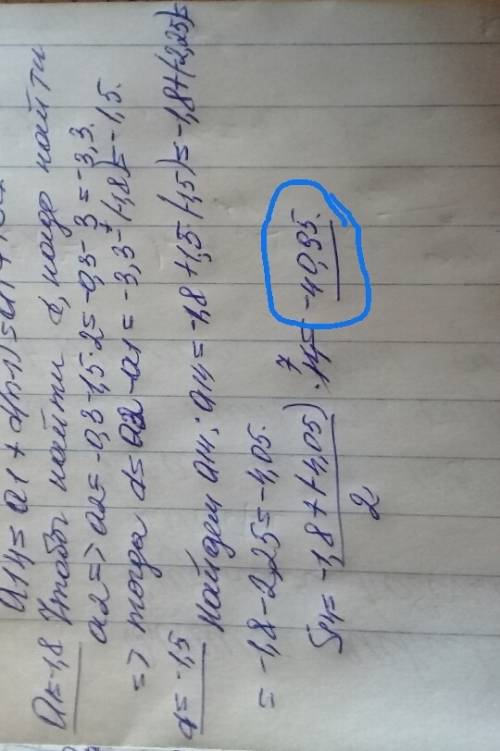 a14 = a1 + d(n-1) =
a1=-1,8 Чтобы найти d, надо найти
a2 => a2 = -0,3-1,5·2 = -0,3-3 = -3,3.
=> тогда d = a2 - a1 = -3,3-(-1,8) = -1,5.
d = -1,5 Найдем a14: a14 = -1,8+1,5·(-1,5) = -1,8+(-2,25)=
= -1,8-2,25 = -4,05.
S14 = -1,8+(-4,05) / 2 · 14 7 = -40,95.